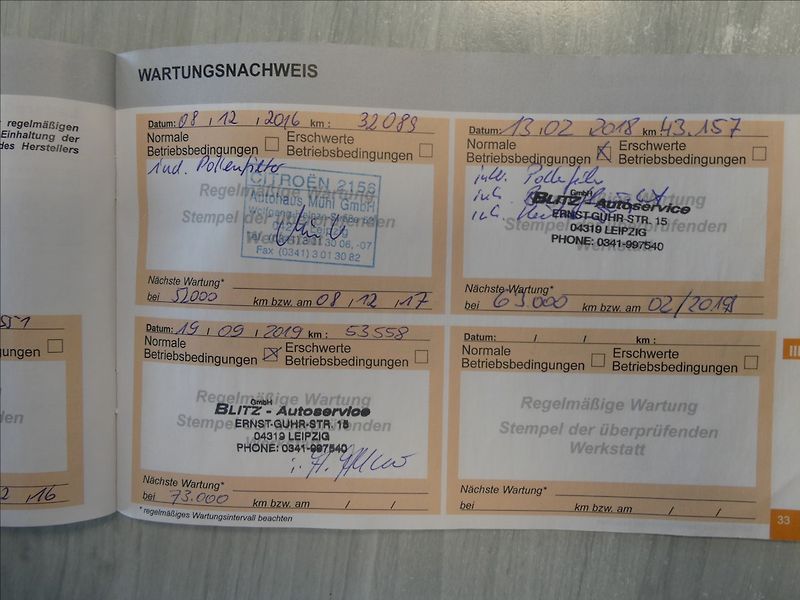 regelmäßigen
Einhaltung der
des Herstellers
ungen
2 , 16
WARTUNGSNACHWEIS
Datum: 08 , 12 , 2016 km : 32089
Normale Erschwerte
Betriebsbedingungen Betriebsbedingungen
incl. Pollenfilter
Regelmäßige Wartung
Stempel der überprüfenden
Werkstatt
CITROËN 2156
Autohaus Mühl GmbH
Fax (0341) 3 01 30 82
Nächste Wartung*
bei 52000 km bzw. am 08 , 12 , 17
Datum: 13.02 2018 km 43.157
Normale Erschwerte
Betriebsbedingungen Betriebsbedingungen
GmbH
BLITZ - Autoservice
ERNST-GUHR-STR. 15
04319 LEIPZIG
PHONE: 0341-997540
Nächste Wartung*
bei 63.000 km bzw. am 02/2019
Datum: 19 , 09 , 2019 km : 53558
Normale Erschwerte
Betriebsbedingungen Betriebsbedingungen
Regelmäßige Wartung
Stempel der überprüfenden
Werkstatt
GmbH
BLITZ - Autoservice
ERNST-GUHR-STR. 15
04319 LEIPZIG
PHONE: 0341-997540
Nächste Wartung*
bei 73.000 km bzw. am / /
* regelmäßiges Wartungsintervall beachten
Datum: / / km :
Normale Erschwerte
Betriebsbedingungen Betriebsbedingungen
Regelmäßige Wartung
Stempel der überprüfenden
Werkstatt
Nächste Wartung*
bei km bzw. am / /
III
33